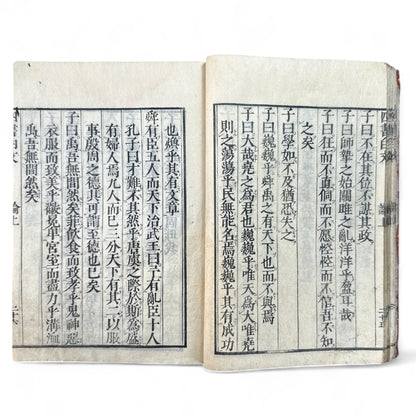 四書白文 論上 二十五
子曰不在其位不謀其政
子曰師摯之始關雎之亂洋洋乎盈耳哉
子曰狂而不直侗而不愿悾悾而不信吾不知
之矣
子曰學如不及猶恐失之
子曰巍巍乎舜禹之有天下也而不與焉
子曰大哉堯之為君也巍巍乎唯天為大唯堯
則之蕩蕩乎民無能名焉巍巍乎其有成功
也煥乎其有文章
舜有臣五人而天下治武王曰予有亂臣十人
孔子曰才難不其然乎唐虞之際於斯為盛
有婦人焉九人而已三分天下有其二以服
事殷周之德其可謂至德也已矣
子曰禹吾無間然矣菲飲食而致孝乎鬼神惡
衣服而致美乎黻冕卑宮室而盡力乎溝洫
禹吾無間然矣
四書白文 論上 二十六